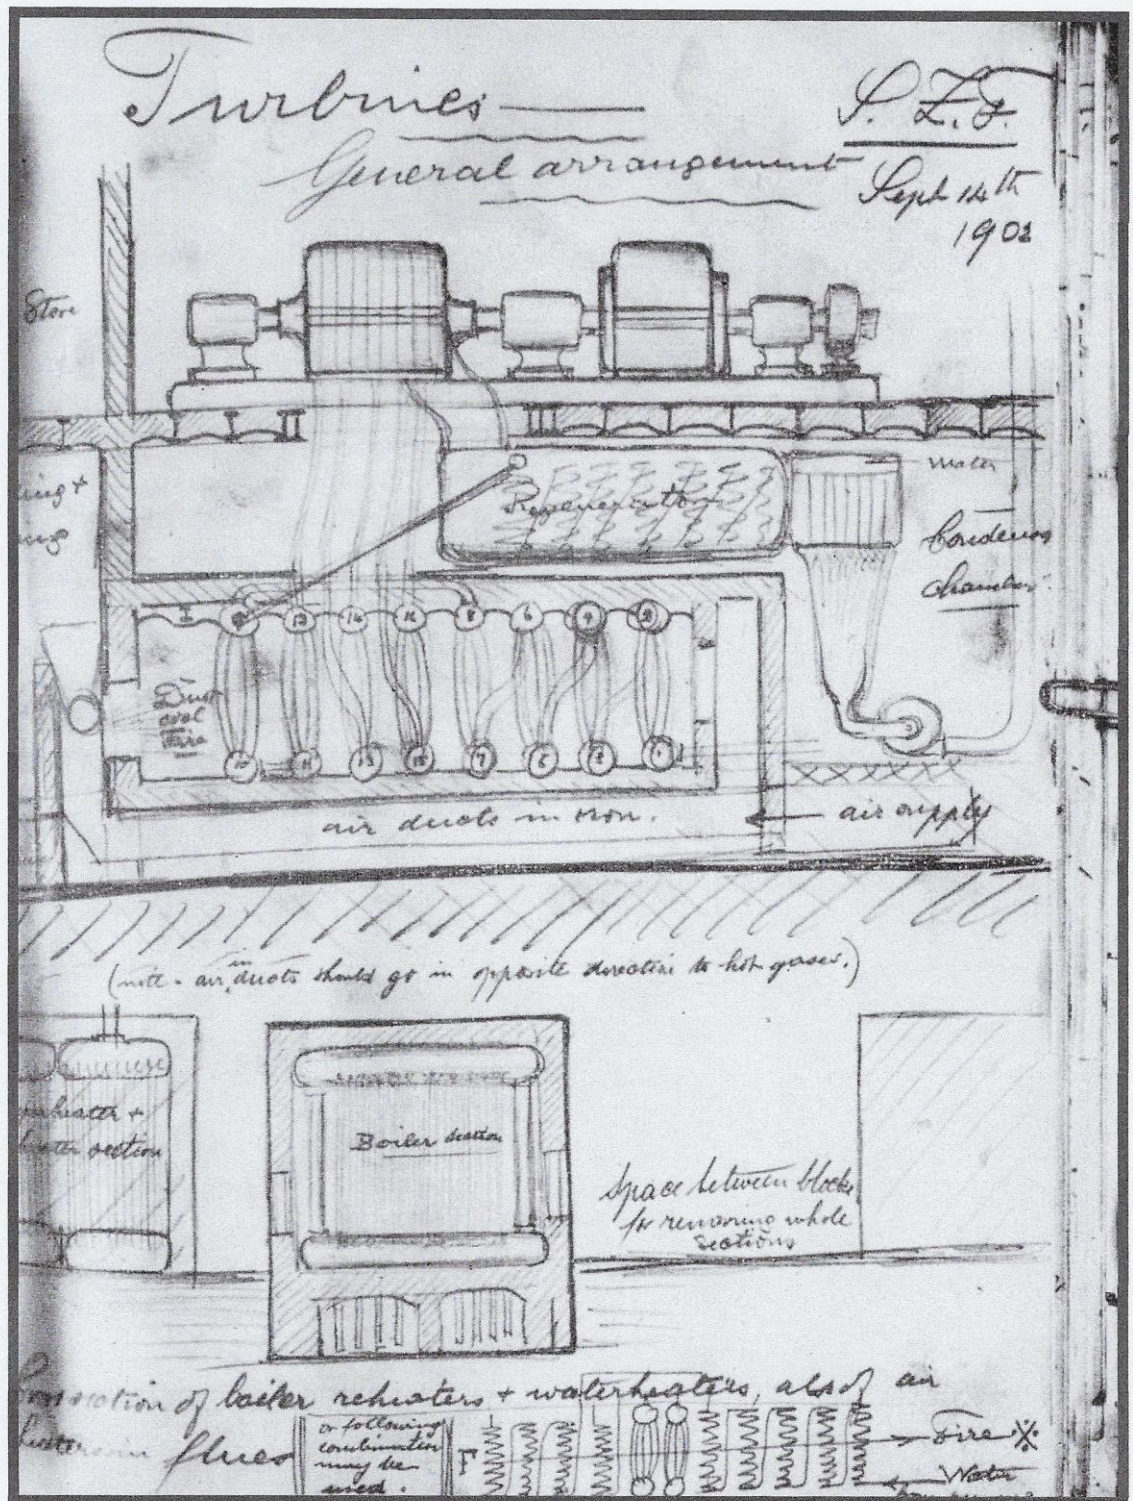 Turbines
General arrangement
S. Z. F.
Sept 14th
1902
Store
ing +
ing
Regenerator
Water
Condensg
chamber
9 13 14 16 8 6 4 2
Dust
coal
Fire
10 11 15 7 5 3 1
air ducts in iron.
air supply
(note - air in ducts should go in opposite direction to hot gases.)
heater +
heater section
Boiler section
Space between blocks
for removing whole
sections
section of boiler reheaters + waterheaters, also of air
flues
or following
combination
may be
used.
F
Fire
Water